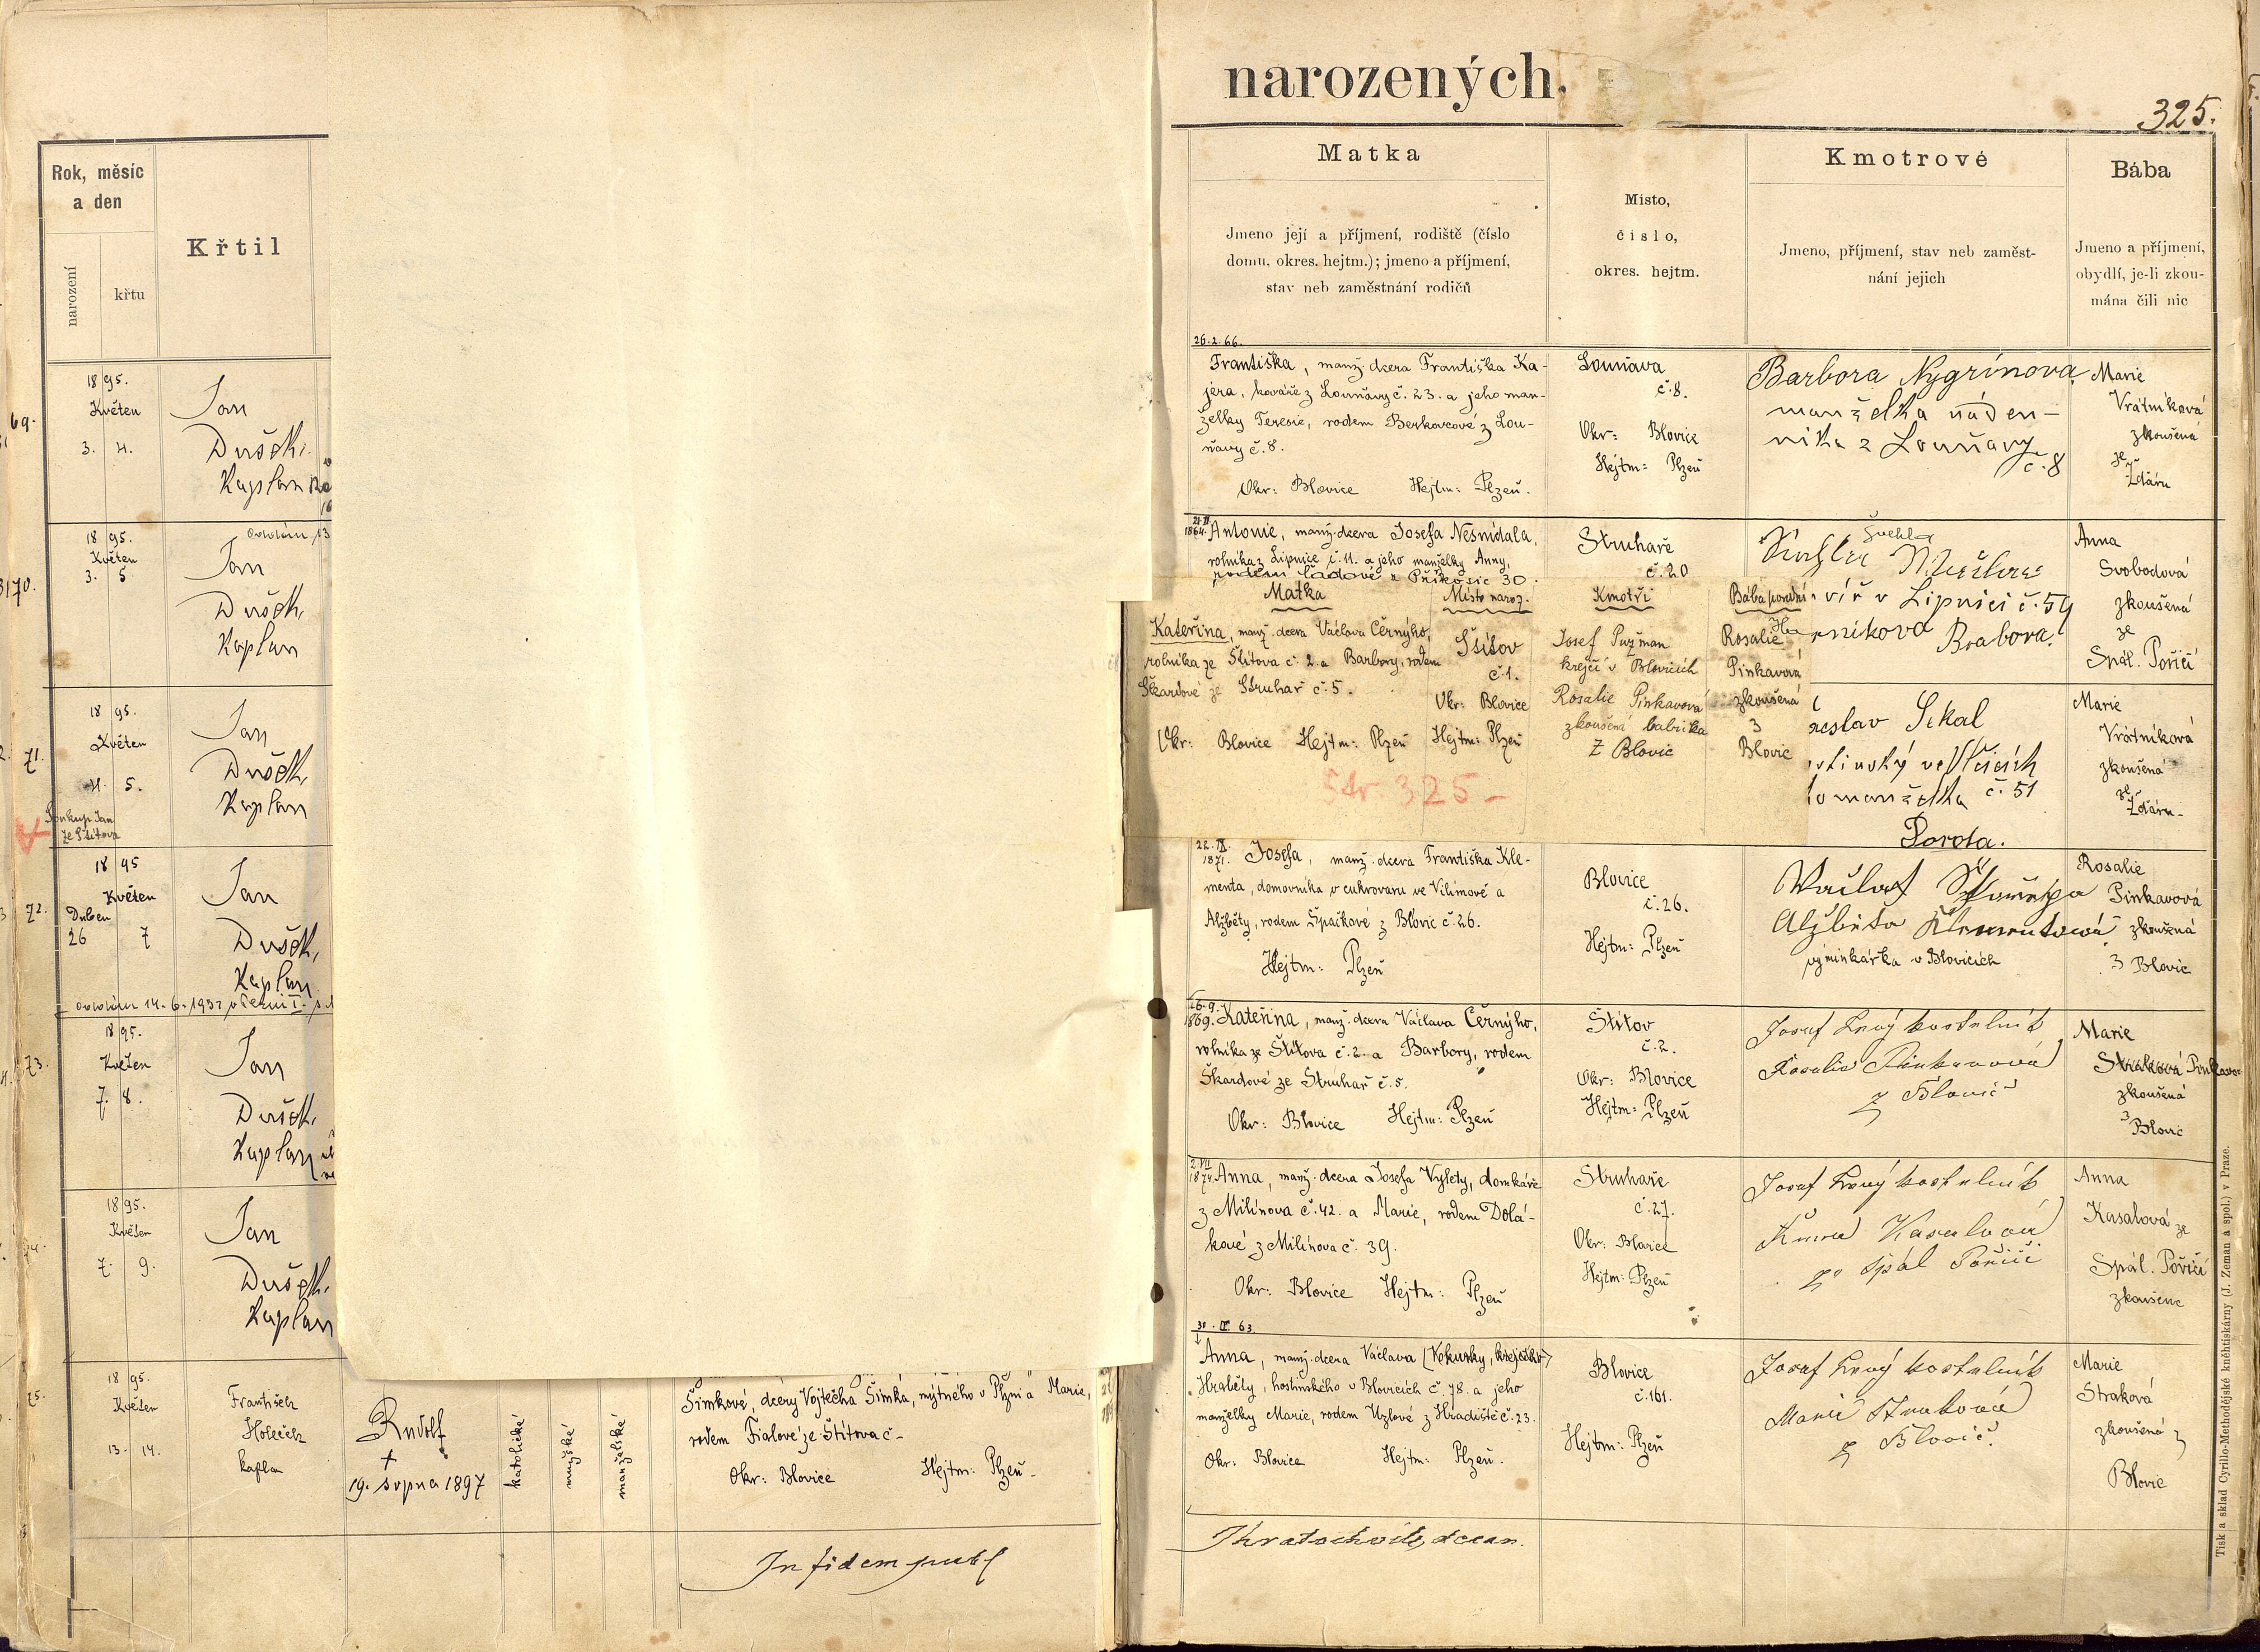 narozených.
325.
Rok, měsíc
a den
narození
křtu
Křtil
Matka
Jmeno její a příjmení, rodiště (číslo
domu, okres. hejtm.); jmeno a příjmení,
stav neb zaměstnání rodičů
Místo,
číslo,
okres. hejtm.
Kmotrové
Jmeno, příjmení, stav neb zaměst-
nání jejich
Bába
Jmeno a příjmení,
obydlí, je-li zkou-
mána čili nic
69.
1895.
Květen
3. 4.
Jan
Dušek,
Kaplan
26.2.66.
Františka, manž. dcera Františka Ka-
jera, kováře z Louňavy č. 23. a jeho man-
želky Teresie, rodem Berkovcové z Lou-
ňavy č. 8.
Okr: Blovice Hejtm: Plzeň.
Louňava
č. 8.
Okr: Blovice
Hejtm: Plzeň
Barbora Nygrínova
manželka náden-
níka z Louňavy
č. 8
Marie
Vrátníková
zkoušená
ze
Žďáru
70.
1895.
Květen
3. 5
Jan
Dušek,
Kaplan
1864. Antonie, manž. dcera Josefa Nesnídala,
rolníka z Lipnice č. 11. a jeho manželky Anny,
rodem Ladové z Příkosic 30.
Struhaře
č. 20
Švehla
v Lipnici č. 59
Anna
Svobodová
zkoušená
ze
Spál. Poříčí
Matka
Místo naroz.
Kmotři
Bába porodní
Kateřina, manž. dcera Václava Černýho,
rolníka ze Štítova č. 2. a Barbory, rodem
Škardové ze Struhař č. 5.
Okr: Blovice Hejtm: Plzeň
Štítov
č. 1.
Okr: Blovice
Hejtm: Plzeň
Josef Puzman
krejčí v Blovicích
Rosalie Pinkavová
zkoušená babička
z Blovic
Rosalie
Pinkavová
zkoušená
z
Blovic
Str. 325 -
71.
1895.
Květen
4. 5.
Jan
Dušek,
Kaplan
Soukup Jan
ze Štítova
Sikal
ve Vlčicích
č. 51
Dorota.
Marie
Vrátníková
zkoušená
ze
Žďáru
72.
1895
Květen
Duben
26 7
Jan
Dušek,
Kaplan
22.IX.
1871. Josefa, manž. dcera Františka Kle-
menta, domovníka v cukrovaru ve Vilímově a
Alžběty, rodem Špačkové z Blovic č. 26.
Hejtm: Plzeň
Blovice
č. 26.
Hejtm: Plzeň
Alžběta Klementová
výminkářka v Blovicích
Rosalie
Pinkavová
zkoušená
z Blovic
73.
1895.
Květen
7. 8.
Jan
Dušek,
Kaplan
16.9.
1869. Kateřina, manž. dcera Václava Černýho,
rolníka ze Štítova č. 2. a Barbory, rodem
Škardové ze Struhař č. 5.
Okr: Blovice Hejtm: Plzeň
Štítov
č. 2.
Okr: Blovice
Hejtm: Plzeň
Josef Levý kostelník
Rosalie Pinkavová
z Blovic
Marie
Straková Pinkavo
zkoušená
z
Blovic
1895.
Květen
7. 9.
Jan
Dušek,
Kaplan
2.VII
1874 Anna, manž. dcera Josefa Výlety, domkáře
z Milínova č. 42. a Marie, rodem Dolá-
kové z Milínova č. 39.
Okr: Blovice Hejtm: Plzeň
Struhaře
č. 27.
Okr: Blovice
Hejtm: Plzeň
Josef Levý kostelník
Anna Kasalová
ze Spál Poříčí
Anna
Kasalová ze
Spál. Poříčí
zkoušené
75.
1895.
Květen
13. 14.
František
Holeček
kaplan
Rudolf
+
19. srpna 1897
katolické
mužské
manželské
Šimkové, dcery Vojtěcha Šimka, mýtného v Plzni a Marie,
rodem Fialové ze Štítova č -
Okr: Blovice Hejtm: Plzeň -
Anna, manž. dcera Václava (Kokušky, krejčího)
Hraběty, hostinského v Blovicích č. 78. a jeho
manželky Marie, rodem Uzlové z Hradiště č. 23.
Okr: Blovice Hejtm: Plzeň.
Blovice
č. 161.
Hejtm: Plzeň
Josef Levý kostelník
Marie Straková
z Blovic
Marie
Straková
zkoušená z
Blovic
In fidem publ
Tisk a sklad Cyrillo-Methodějské knihtiskárny (J. Zeman a spol.) v Praze.